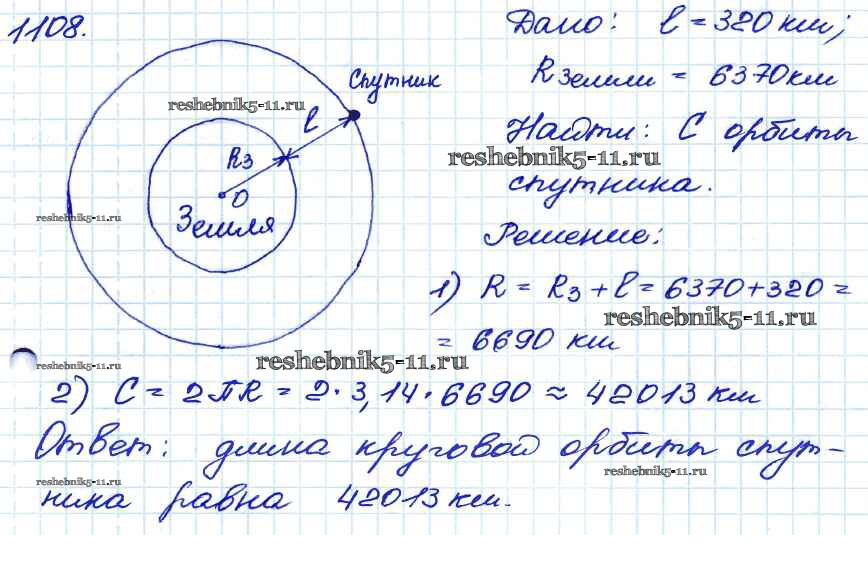 1108.
Дано: l = 320 км;
Спутник
reshebnik5-11.ru
l
Rземли = 6370 км
Rз
Найти: C орбиты
reshebnik5-11.ru
спутника.
O
reshebnik5-11.ru
Земля
Решение:
1) R = Rз + l = 6370 + 320 =
reshebnik5-11.ru
= 6690 км
reshebnik5-11.ru
reshebnik5-11.ru
2) C = 2πR = 2 · 3,14 · 6690 ≈ 42013 км
Ответ: длина круговой орбиты спут-
reshebnik5-11.ru
reshebnik5-11.ru
ника равна 42013 км.